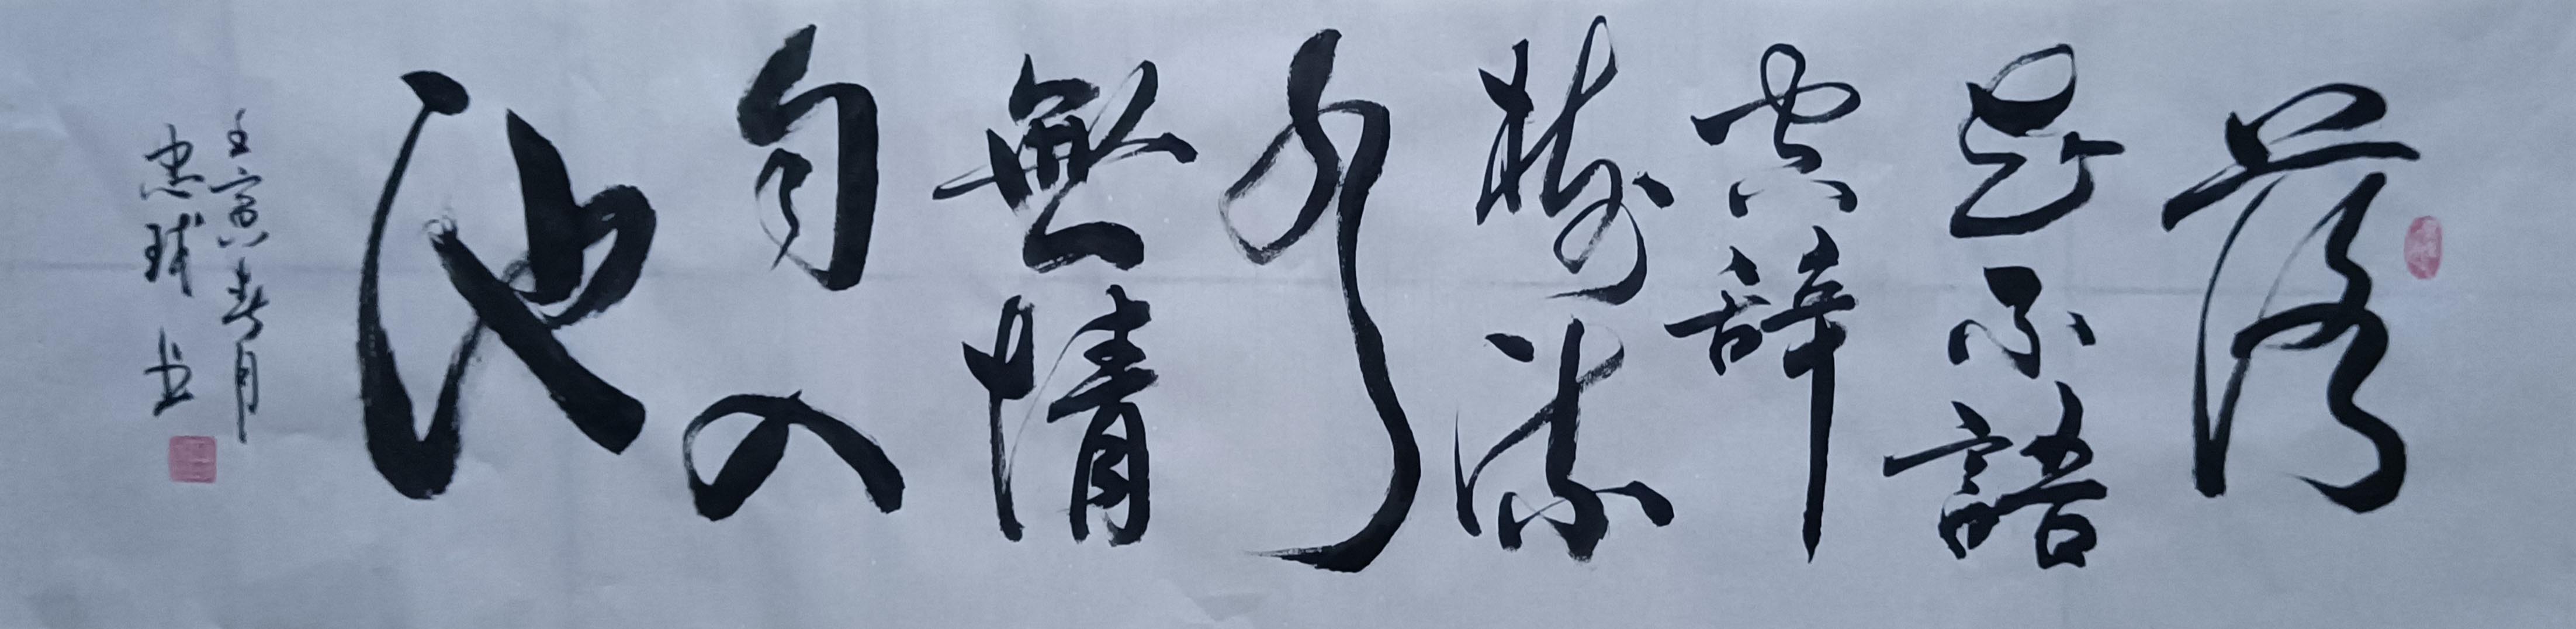 落
花不語
空辭
樹流
水
無情
自入
池
壬寅春月
忠球书